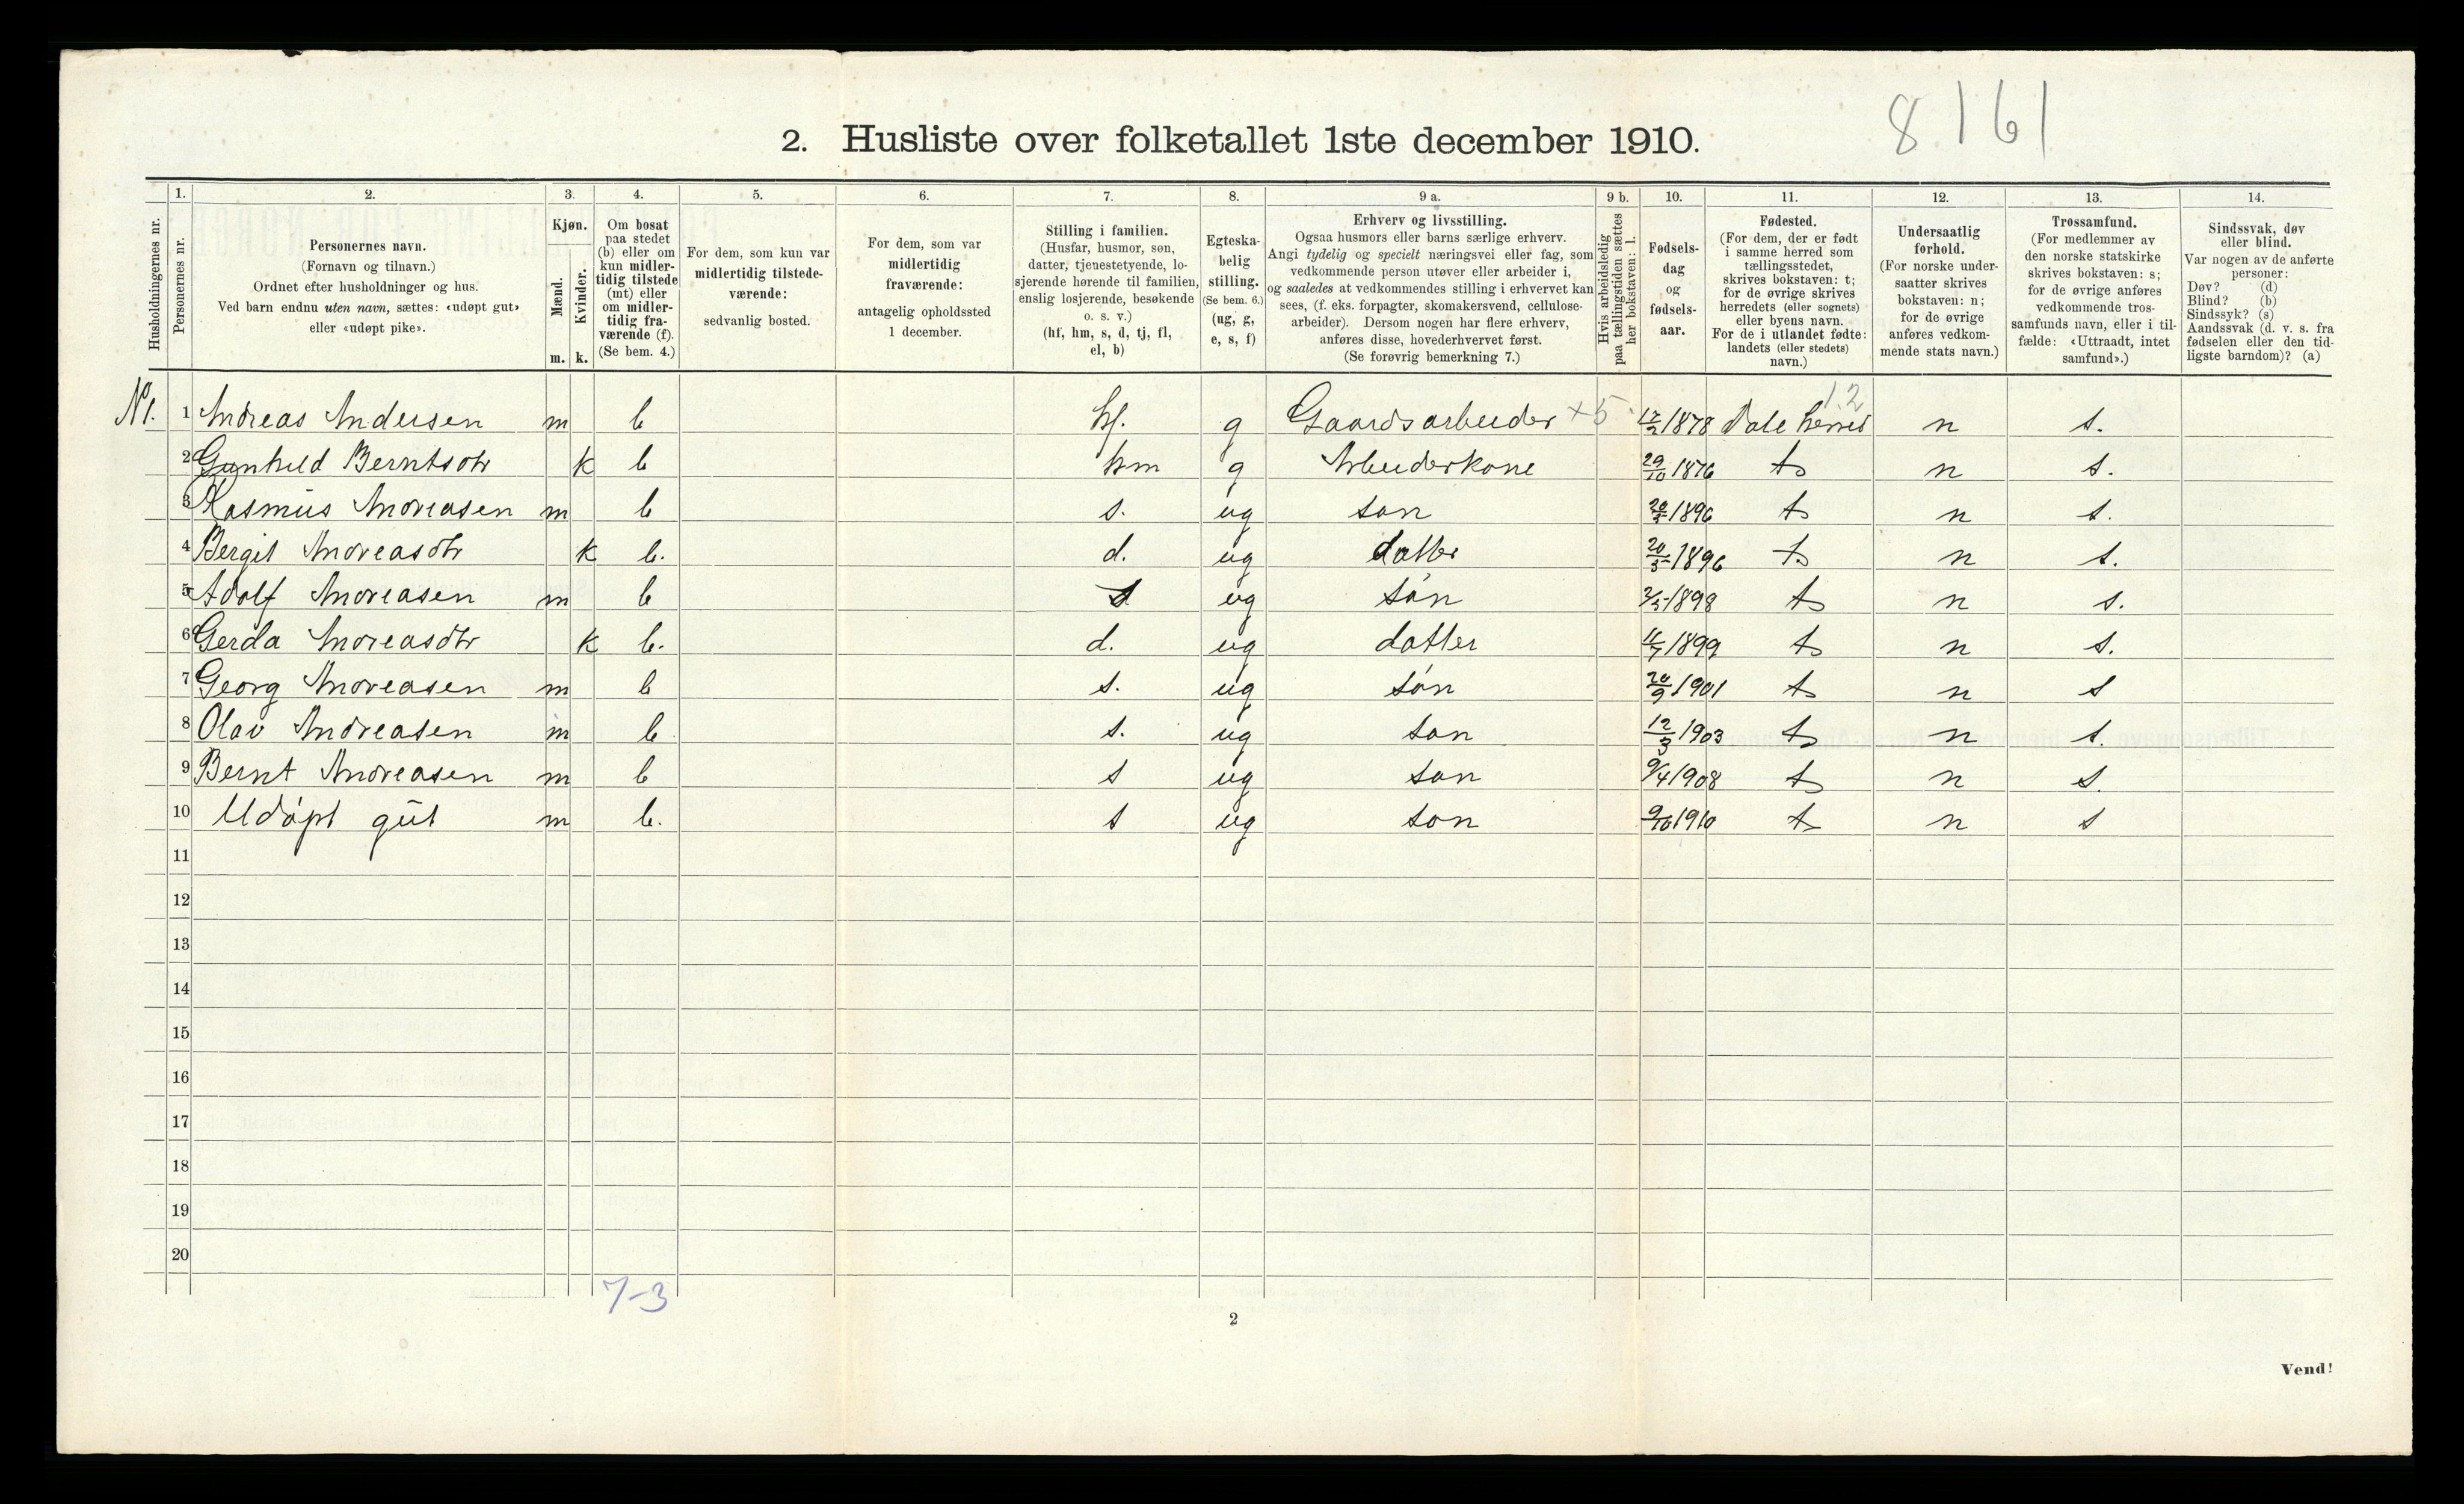 8161
2. Husliste over folketallet 1ste december 1910.
Husholdningernes nr.
1. Personernes nr.
2. Personernes navn. (Fornavn og tilnavn.) Ordnet efter husholdninger og hus. Ved barn endnu uten navn, sættes: «udøpt gut» eller «udøpt pike».
3. Kjøn. Mænd. m. Kvinder. k.
4. Om bosat paa stedet (b) eller om kun midlertidig tilstede (mt) eller om midlertidig fraværende (f). (Se bem. 4.)
5. For dem, som kun var midlertidig tilstedeværende: sedvanlig bosted.
6. For dem, som var midlertidig fraværende: antagelig opholdssted 1 december.
7. Stilling i familien. (Husfar, husmor, søn, datter, tjenestetyende, losjerende hørende til familien, enslig losjerende, besøkende o. s. v.) (hf, hm, s, d, tj, fl, el, b)
8. Egteskabelig stilling. (Se bem. 6.) (ug, g, e, s, f)
9 a. Erhverv og livsstilling. Ogsaa husmors eller barns særlige erhverv. Angi tydelig og specielt næringsvei eller fag, som vedkommende person utøver eller arbeider i, og saaledes at vedkommendes stilling i erhvervet kan sees, (f. eks. forpagter, skomakersvend, cellulosearbeider). Dersom nogen har flere erhverv, anføres disse, hovederhvervet først. (Se forøvrig bemerkning 7.)
9 b. Hvis arbeidsledig paa tællingstiden sættes her bokstaven: l.
10. Fødselsdag og fødselsaar.
11. Fødested. (For dem, der er født i samme herred som tællingsstedet, skrives bokstaven: t; for de øvrige skrives herredets (eller sognets) eller byens navn. For de i utlandet fødte: landets (eller stedets) navn.)
12. Undersaatlig forhold. (For norske undersaatter skrives bokstaven: n; for de øvrige anføres vedkommende stats navn.)
13. Trossamfund. (For medlemmer av den norske statskirke skrives bokstaven: s; for de øvrige anføres vedkommende trossamfunds navn, eller i tilfælde: «Uttraadt, intet samfund».)
14. Sindssvak, døv eller blind. Var nogen av de anførte personer: Døv? (d) Blind? (b) Sindssyk? (s) Aandssvak (d. v. s. fra fødselen eller den tidligste barndom)? (a)
N1. 1 Andreas Andersen m b hf. g Gaardsarbeider +5 1878 Dale herred 12 n s.
2 Gunhild Berntsdtr k b hm g Arbeiderkone 29/10 1876 t n s.
3 Rasmus Andreasen m b s. ug søn 20/3 1896 t n s.
4 Bergit Andreasdtr k b. d. ug datter 20/3 1896 t n s.
5 Adolf Andreasen m b s ug søn 2/5 1898 t n s.
6 Gerda Andreasdtr k b. d. ug datter 1899 t n s.
7 Georg Andreasen m b s. ug søn 20/9 1901 t n s
8 Olav Andreasen m b s. ug søn 12/3 1903 t n s.
9 Bernt Andreasen m b s ug søn 9/4 1908 t n s.
10 Udøpt gut m b. s ug søn 9/10 1910 t n s
11
12
13
14
15
16
17
18
19
20
7-3
2
Vend!